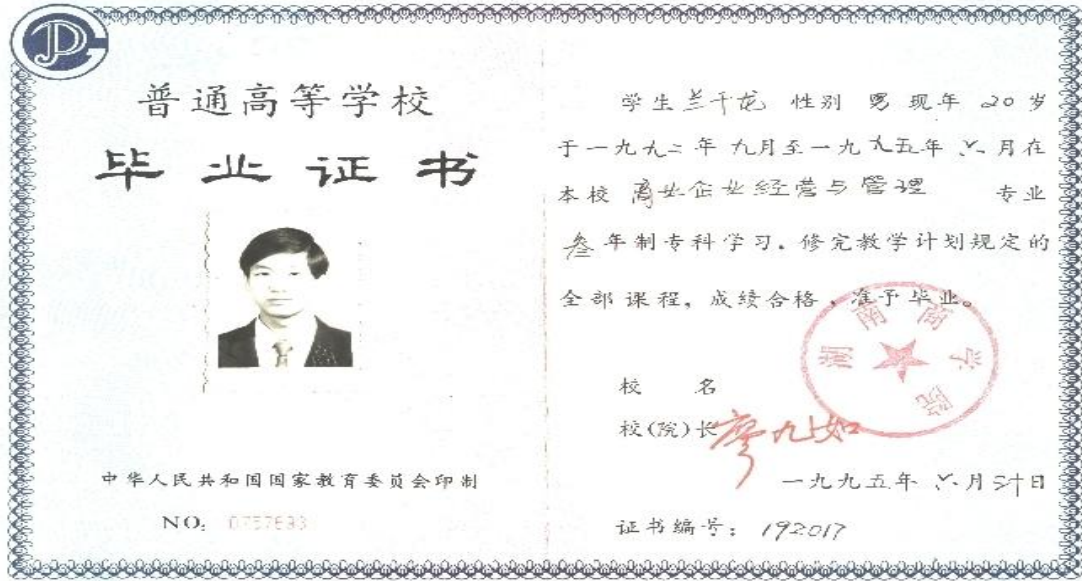 普通高等学校
毕业证书
中华人民共和国国家教育委员会印制
NO:
学生兰千龙 性别 男 现年 20岁
于一九九二年九月至一九九五年六月在
本校 商业企业经营与管理 专业
叁年制专科学习,修完教学计划规定的
全部课程,成绩合格,准予毕业。
湖南商学院
校 名
校(院)长 廖九如
一九九五年六月卅日
证书编号:192017